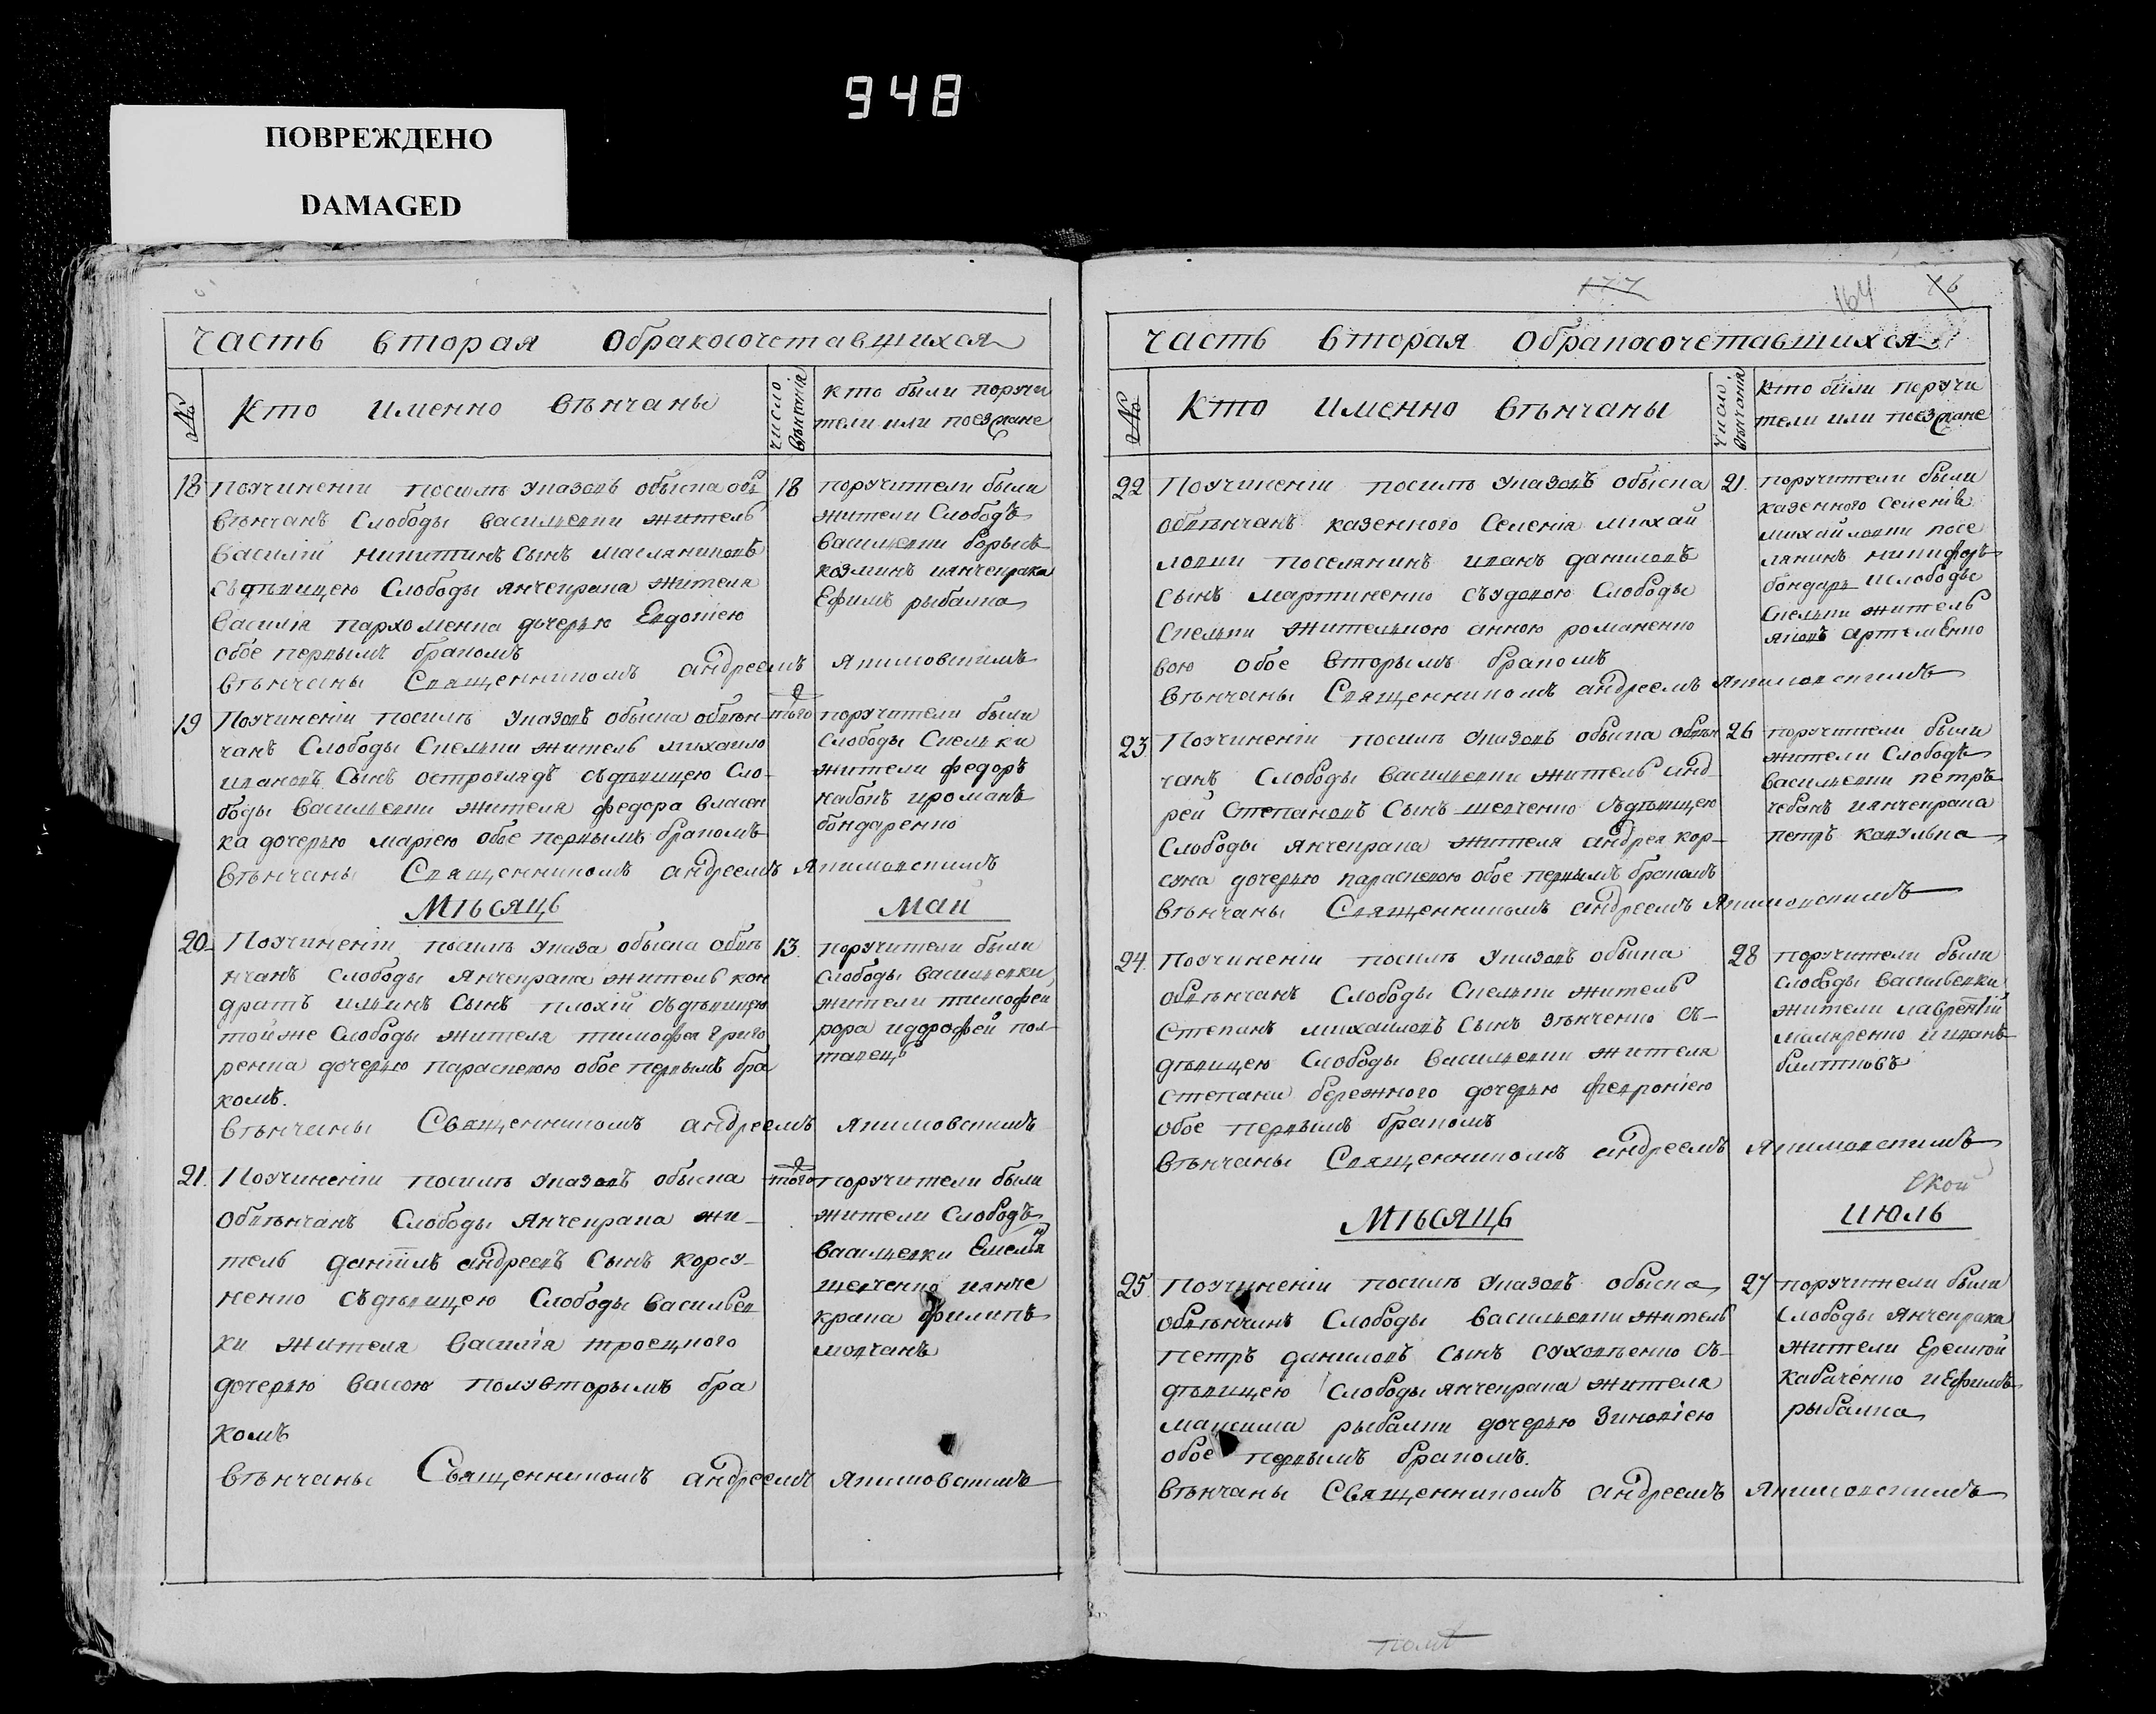 948
ПОВРЕЖДЕНО
DAMAGED
Часть вторая Обракосочетавшихся
№
Кто именно вѣнчаны
число вѣнчанія
кто были поручи
тели или поезжане
18 Поучиненіи посилѣ указовъ обыска обѣ
вѣнчанъ Слободы василевки житель
василій никитинъ сынъ масляниковъ
съдѣвицею Слободы янчекрака жителя
василія пархоменка дочерью Евдотіею
обое первымъ бракомъ
вѣнчаны Священникомъ андреемъ Якимовскимъ
18
поручители были
жители Слободъ
василевки борысъ
козминъ иянчекрака
Ефимъ рыбалка
19 Поучиненіи посилѣ указовъ обыска обвѣн
чанъ Слободы Спелки житель михаило
ивановъ Сынъ остроглядъ съдѣвицею Сло-
боды василевки жителя федора власен
ка дочерью маріею обое первымъ бракомъ
вѣнчаны Священникомъ андреемъ Якимовскимъ
того
поручители были
Слободы Спелки
жители федоръ
кабакъ ироманъ
бондаренко
Мѣсяцъ Маи
20 Поучиненіи посилѣ указа обыска обвѣ
нчанъ Слободы Янчекрака житель кон
дратъ ильинъ Сынъ плохій съдѣвицею
тойже Слободы жителя тимофея григо
ренка дочерью параскевою обое первымъ бра
комъ.
вѣнчаны Священникомъ андреемъ якимовскимъ
13.
поручители были
Слободы василевки
жители тимофей
рора идорофей пол-
тавецъ
21. Поучиненіи посилѣ указовъ обыска
Обвѣнчанъ Слободы Янчекрака жи-
тель даніилъ андреевъ Сынъ корсу-
ненко съдѣвицею Слободы васильев
ки жителя василія троецкого
дочерью вассою полувторымъ бра
комъ
вѣнчаны Священникомъ андреемъ якимовскимъ
того
поручители были
жители Слободъ
васильевки Емельян
шевченко иянче
крака филипъ
мовчанъ
177 164 76
Часть вторая Обракосочетавшихся
№
Кто именно вѣнчаны
число вѣнчанія
Кто были поручи
тели или поезжане
22 Поучиненіи посилѣ указовъ обыска
обвѣнчанъ казенного Селенія михай
ловки поселянинъ иванъ даниловъ
сынъ мартиненко съудовою Слободы
Спелки жителькою анною романенко
вою обое вторымъ бракомъ
вѣнчаны Священникомъ андреемъ якимовскимъ
21.
поручители были
казенного Селенія
михайловки посе
лянинъ никифоръ
бондарь ислободы
Спелки житель
яковъ артеменко
23 Поучиненіи посилѣ указовъ обыска обвѣн
чанъ Слободы василевки житель анд-
рей Степановъ Сынъ шевченко съдѣвицею
Слободы янчекрака жителя андрея кор-
суна дочерью параскевою обое первымъ бракомъ
вѣнчаны Священникомъ андреемъ Якимовскимъ
26
поручители были
жители Слободъ
василевки петръ
чебанъ иянчекрака
петръ ковулка
24. Поучиненіи посилѣ указовъ обыска
обвѣнчанъ Слободы Спелки житель
степанъ михаиловъ Сынъ зѣнченко съ-
дѣвицею Слободы василевки жителя
степана бережного дочерью февроніею
обое первымъ бракомъ
вѣнчаны Священникомъ андреемъ Якимовскимъ
28
поручители были
слободы васильевки
жители лаврентій
маляренко ииванъ
Мѣсяцъ июль
25. Поучиненіи посилѣ указовъ обыска
обвѣнчанъ Слободы василевки житель
петръ даниловъ сынъ суховѣенко съ-
дѣвицею Слободы янчекрака жителя
максима рыбалки дочерью зиновіею
обое первымъ бракомъ.
вѣнчаны Священникомъ андреемъ Якимовскимъ
27
поручители были
Слободы Янчекрака
жители Еремій
кабаченко иЕфимъ
рыбалка